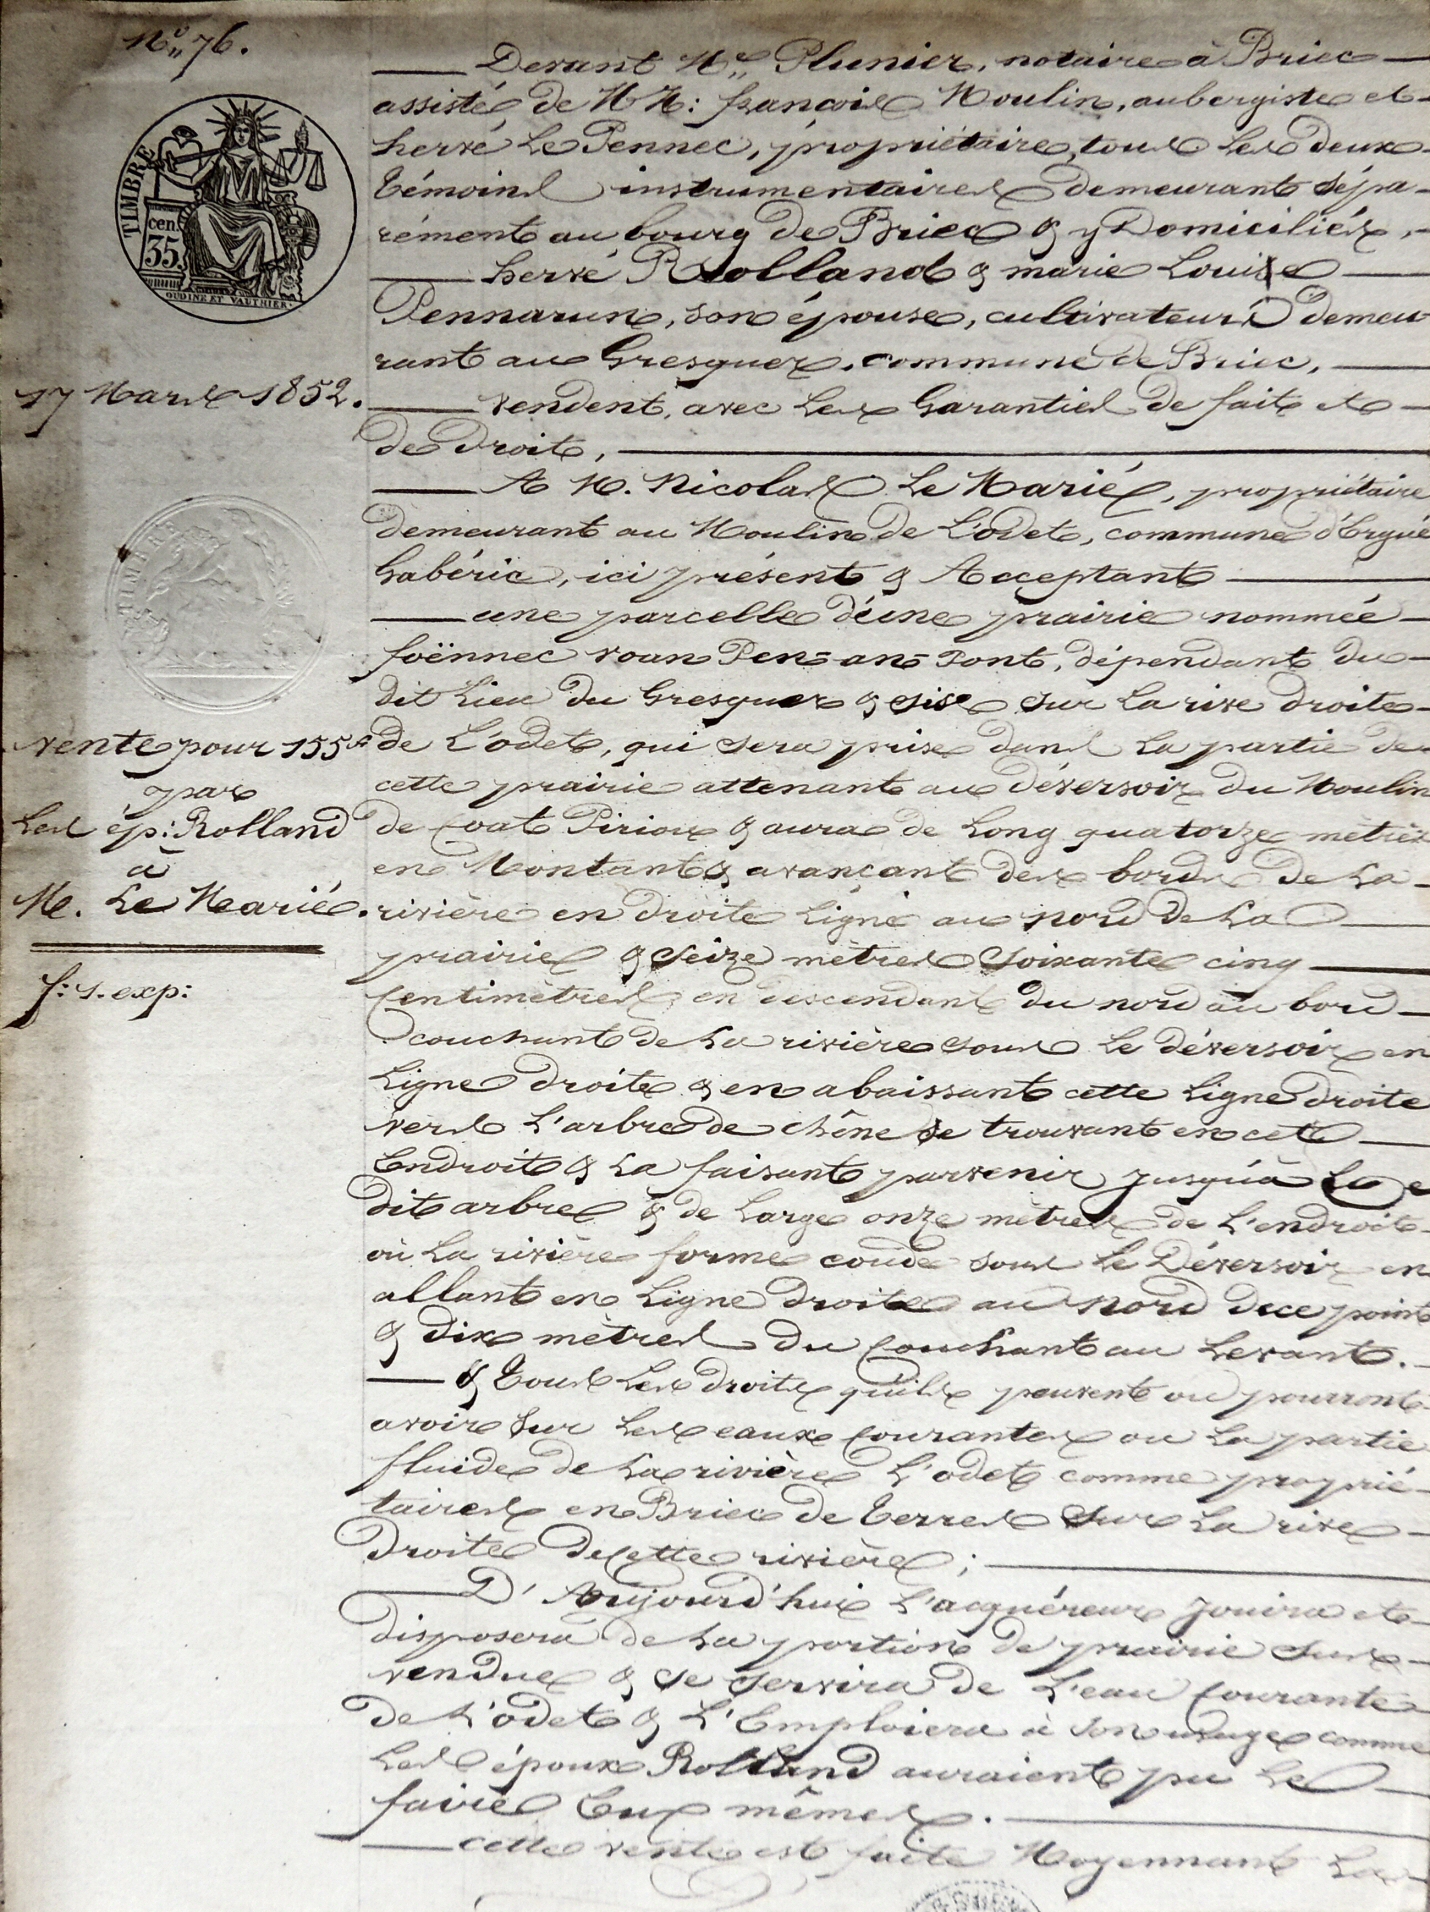 N° 76.
TIMBRE
cen.
35.
OUDINÉ ET VAUTHIER.
17 Mars 1852.
TIMBRE
vente pour 155f
par
Les ép: Rolland
à
M. Le Marié.
f: s. exp:
Devant Me Plunier, notaire à Briec
assisté de MM: françois Moulin, aubergiste et
hervé Le Pennec, propriétaire, tous les deux
témoins instrumentaires demeurant sépa-
rément au bourg de Briec & y Domiciliés,
hervé Rolland & marie Louise
Pennarun, son épouse, cultivateurs demeu-
rant au Gresquer, commune de Briec,
vendent, avec les Garanties de fait et
de droit,
A M. Nicolas Le Marié, propriétaire
demeurant au Moulin de L'odet, commune d'Ergué
Gabéric, ici présent & Acceptant
une parcelle d'une prairie nommée
foënnec voan Pen-an-Pont, dépendant du
dit Lieu du Gresquer & sise sur la rive droite
de L'odet, qui sera prise dans la partie de
cette prairie attenant au déversoir du Moulin
de Coat Piriou & aura de long quatorze mètres
en Montant & avançant des bords de la
rivière en droite ligne au nord de la
prairie & seize mètres soixante cinq
Centimètres en descendant du nord au bord
couchant de la rivière sous le déversoir en
Ligne droite & en abaissant cette Ligne droite
vers L'arbre de chêne se trouvant en cet
Endroit & la faisant parvenir jusqu'à Le
dit arbre & de large onze mètres de L'endroit
où la rivière forme coude sous le Déversoir en
allant en Ligne droite au nord de ce point
& dix mètres du Couchant au Levant.
& Tous les droits qu'ils peuvent ou pourront
avoir sur les eaux Courantes ou la partie
fluide de la rivière L'odet comme proprié-
taires en Briec de terres sur la rive
Droite de Cette rivière;
D'Aujourd'hui L'acquéreur Jouira et
disposera de la portion de prairie sus-
vendue & se servira de L'eau Courante
de L'odet & L'Emploiera à son usage comme
Les époux Rolland auraient pu Le
faire Eux mêmes.
cette vente est faite Moyennant La